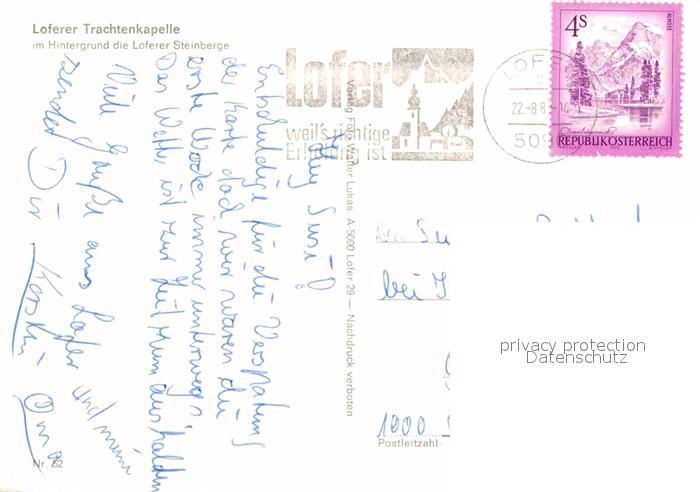 Loferer Trachtenkapelle
im Hintergrund die Loferer Steinberge
Lofer
weil's richtige
Erholung ist
LOFER
22.-8.83-14
509
4S
ALMSEE
REPUBLIK ÖSTERREICH
Susi!
Entschuldige für die Verspätung
der Karte doch wir waren die
erste Woche immer unterwegs.
Das Wetter ist zur Zeit zum aushalten
Viele Grüße aus Lofer und meine
sendet Dir Kerstin Oma
Verlag Foto Walter Lukas, A-5090 Lofer 29 — Nachdruck verboten
bei
1000
Postleitzahl
Nr. 62
privacy protection
Datenschutz